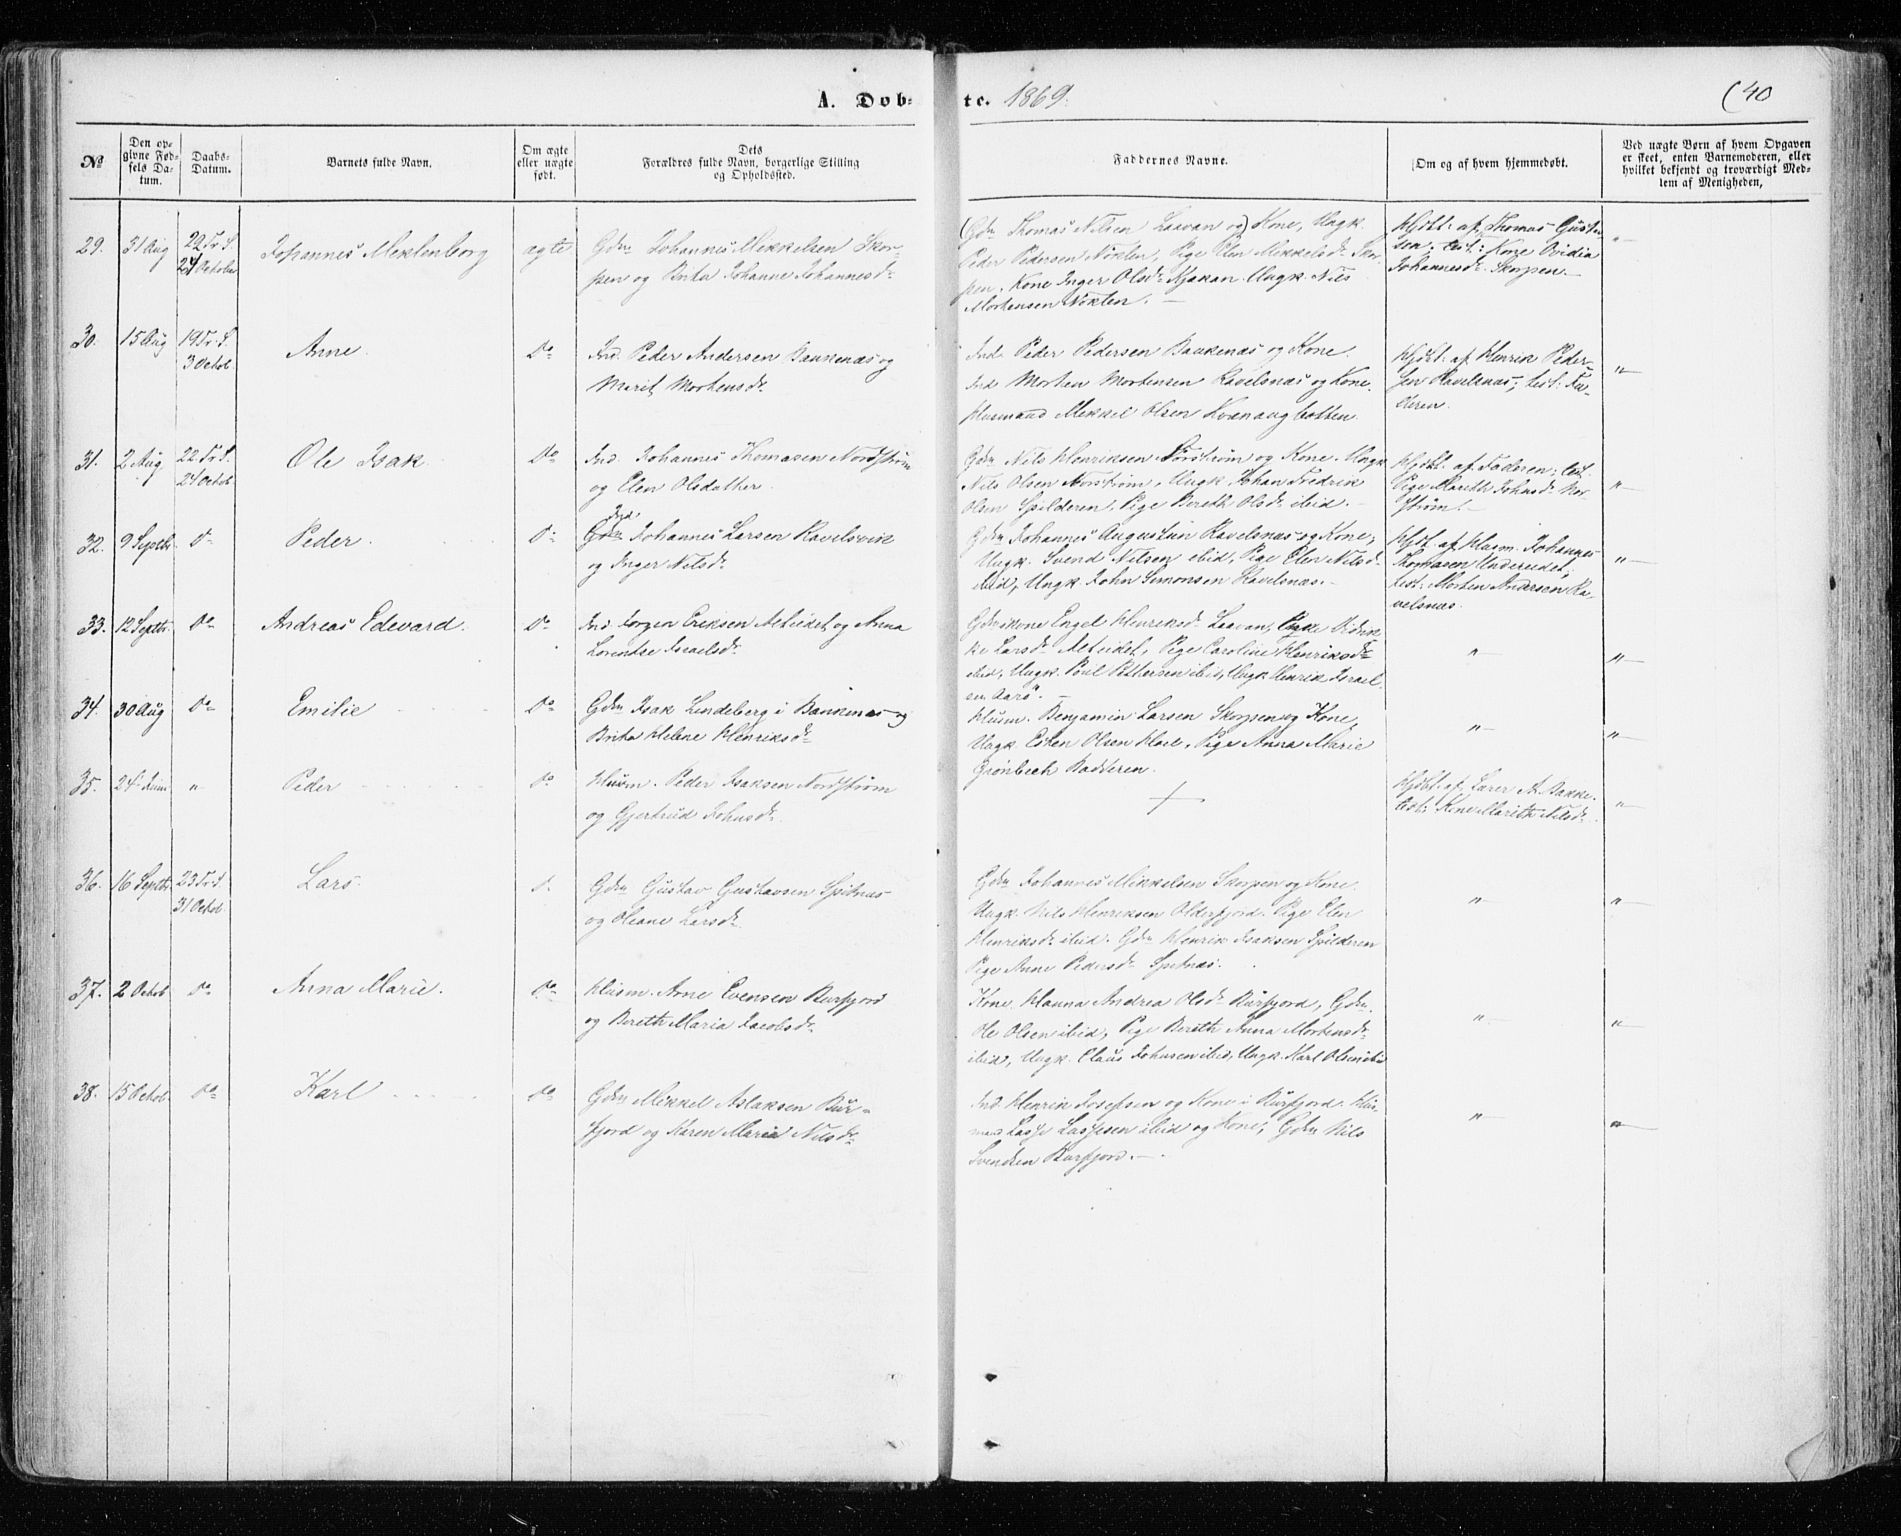 A. Døb-
te. 1869.
(40
No
Den op-
givne Fød-
sels Da-
tum.
Daabs-
Datum.
Barnets fulde Navn.
Om ægte
eller uægte
født.
Dets
Forældres fulde Navn, borgerlige Stilling
og Opholdssted.
Faddernes Navne.
Om og af hvem hjemmedøbt.
Ved uægte Børn af hvem Opgaven
er skeet, enten Barnemoderen, eller
hvilket bekjendt og troværdigt Med-
lem af Menigheden,
29.
31 Aug
22 Tr. S.
24 October
Johannes Meklenborg
ægte
Gdm Johannes Mikkelsen Skor-
pen og Brita Johanne Johannesdr
Gdm Thomas Nilsen Laavan og Kone, Ungk.
Peder Pedersen Nøklen, Pige Elen Mikkelsdr Skor-
pen, Kone Inger Olsdr Kjækan. Ungk. Nils
Mortensen Nøklen. —
Hjdbt: af Thomas Gusta-
sen, test: Kone Ovidia
Johannesdr Skorpen. —
"—
30.
15 Aug
19 Tr. S.
3 Octob
Anne
do
Ind. Peder Andersen Baukenæs og
Marit Mortensdr
Ind. Peder Pedersen Baukenæs og Kone.
Ind Morten Mortensen Ravelsnæs og Kone,
Husmand Mikkel Olsen Kvænangbotten
Hjdbt: af Henrik Peder-
sen Ravelsnæs; test: Fa-
deren.
"—
31.
2 Aug
22 Tr. S.
24 Octob
Ole Isak
do
Ind. Johannes Thomasen Nordstrøm
og Elen Olsdatter.
Gdm Nils Henriksen Norstrøm og Kone. Ungk
Nils Olsen Norstrøm, Ungk Johan Fredrik
Olsen Spilderen. Pige Bereth Olsdr ibid. —
Hjdbt: af Faderen; test
Pige Mareth Johnsdr Nor-
strøm. —
"—
32.
9 Septbr.
do
Peder
do
Ind.
Gdm Johannes Larsen Ravelsvik
og Inger Nilsdr
Gdm Johannes Augustin Ravelsnæs og Kone,
Ungk. Svend Nilsen ibid, Pige Elen Nilsdr
ibid, Ungk John Simonsen Ravelsnæs. —
Hjdt. af Husm. Johannes
Thomasen Undereidet,
test: Morten Andersen Ra-
velsnæs.
"—
33.
12 Septbr.
do
Andreas Edevard.
do
Ind Jørgen Eriksen Alteidet og Anna
Lorentse Israelsdr
Gdmskone Engel Henriksdr Laavan, Pige
Larsdr Alteidet, Pige Caroline Henriksdr
ibid, Ungk. Poul Pettersen ibid, Ungk Henrik Israel-
sen Aarø. —
"—
"—
34.
30 Aug
do
Emilie
do
Gdm Isak Lindeberg i Baukenæs og
Brita Helene Henriksdr
Husm. Benjamin Larsen Skorpen og Kone,
Ungk. Esten Olsen Hoel, Pige Anna Marie
Grønbech Badderen.
"—
"—
35.
24 Juni
"
Peder
do
Husm. Peder Isaksen Nordstrøm
og Gjertrud Johnsdr
+
Hjdbt. af Lærer A. Bakke.
test: Kone Marith Nilsdr
"—
36.
16 Septbr.
23 Tr. S.
31 Octob
Lars
d.
Gdm Gustav Gustavsen Spitnæs
og Oleane Larsdr
Gdm Johannes Mikkelsen Skorpen og Kone.
Ungk. Nils Henriksen Olderfjord. Pige Elen
Henriksdr ibid. Gdm Henrik Isaksen Spilderen
Pige Anne Pedersdr Spitnæs.
"—
"—
37.
2 Octob
do
Anna Marie.
do
Husm. Arne Evensen Burfjord
og Bereth Maria Jacobsdr
Kone Hanna Andrea Olsdr Burfjord, Gdm
Ole Olsen ibid, Pige Bereth Anna Mortensdr
ibid, Ungk. Claus Johnsen ibid, Ungk. Karl Olsen ibid
"—
"—
38.
15 Octob.
do
Karl
do
Gdm Mikkel Aslaksen Bur-
fjord og Karen Maria Nilsdr
Ind. Henrik Josefsen og Kone i Burfjord. Hus-
mand Lasse Lassesen ibid og Kone, Gdm Nils
Svendsen Burfjord. —
"—
"—